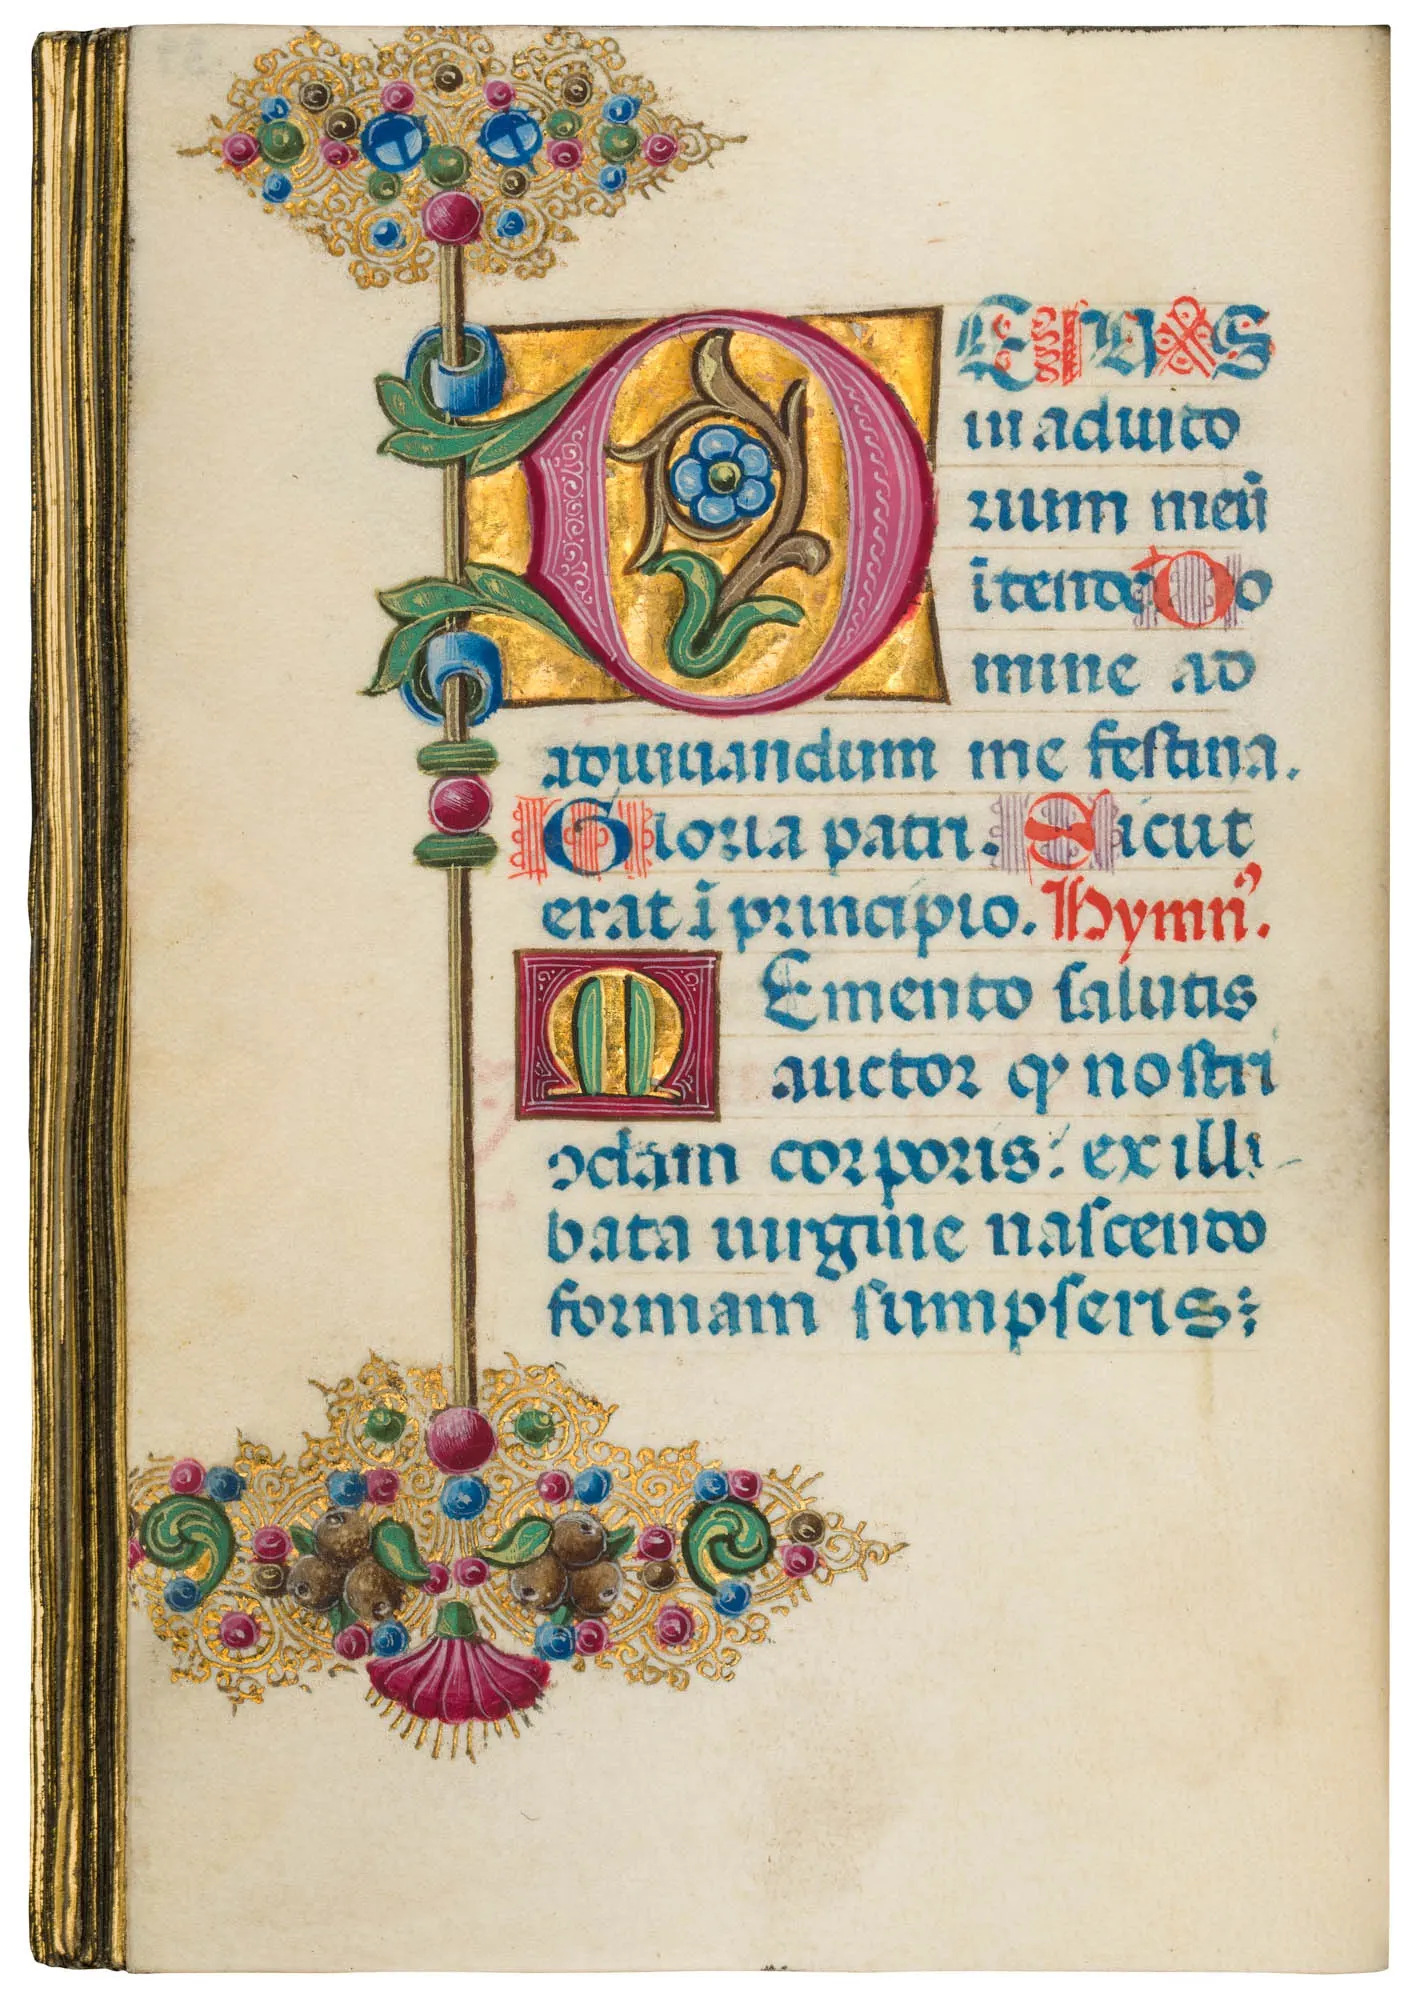 DEIVS
in aduito
rium meū
ītende Do
mine ad
adiuuandum me festina.
Gloria patri. Sicut
erat ī principio. Hymn᾽.
MEmento salutis
auctor ꝙ nostri
ↄdam corporis: ex illi-
bata uirgine nascendo
formam sumpseris: